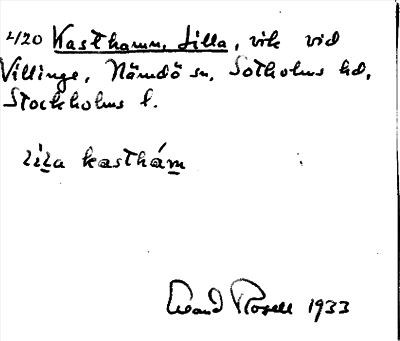 420 Kasthamn, Lilla, vik vid
Villinge, Nämdö sn, Sotholms hd,
Stockholms l.
lila kasthám
Rosell 1933